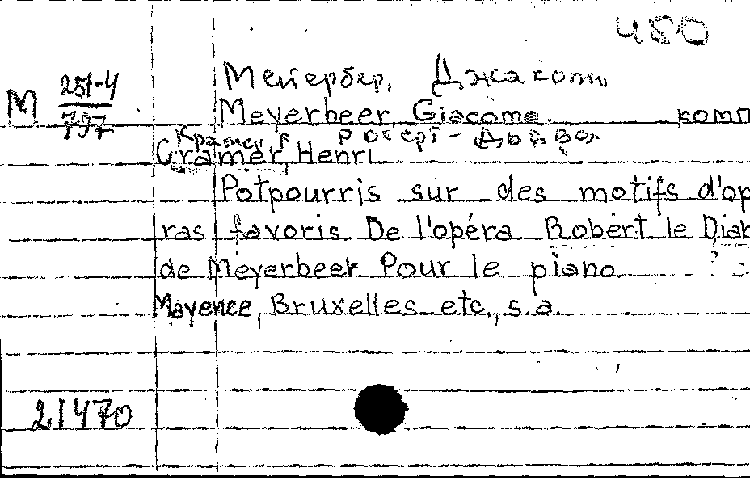 480
Мейербер, Джакомо
М 251-4
797
Meyerbeer, Giacomo комп
Крамер Г Роберт-Дьявол
Cramer, Henri
Potpourris sur des motifs d'op
ras favoris. De l'opéra Robert le Diab
de Meyerbeer Pour le piano
Mayence, Bruxelles etc., s.a.
21470